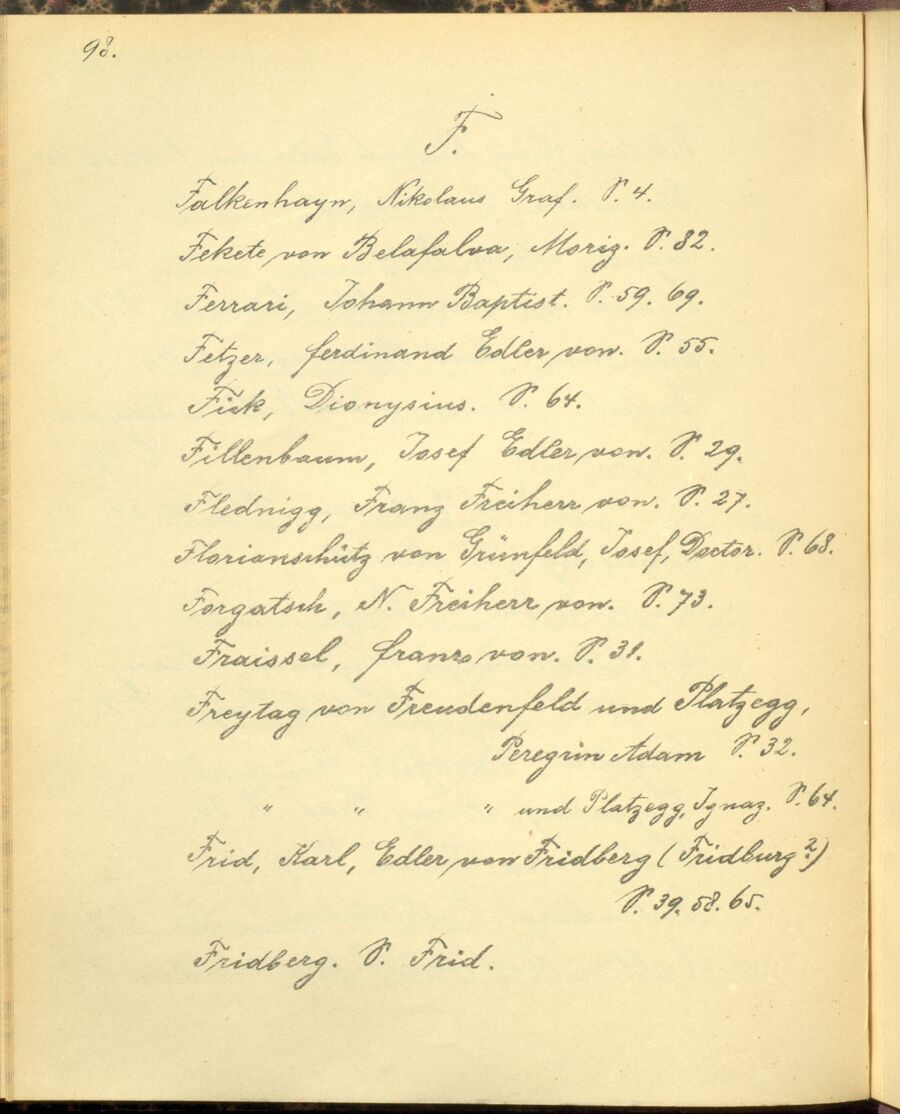 98.
F.
Falkenhayn, Nikolaus Graf. S. 4.
Fekete von Belafalva, Moriz. S. 82.
Ferrari, Johann Baptist. S. 59. 69.
Fetzer, Ferdinand Edler von. S. 55.
Fick, Dionysius. S. 64.
Fillenbaum, Josef Edler von. S. 29.
Flednigg, Franz Freiherr von. S. 27.
Florianschütz von Grünfeld, Josef, Doctor. S. 68.
Forgatsch, N. Freiherr von. S. 73.
Fraissel, Franz von. S. 31.
Freytag von Freudenfeld und Platzegg,
Peregrin Adam S. 32.
" " " und Platzegg, Ignaz. S. 64.
Frid, Karl, Edler von Fridberg (Fridburg?)
S. 39. 58. 65.
Fridberg. S. Frid.